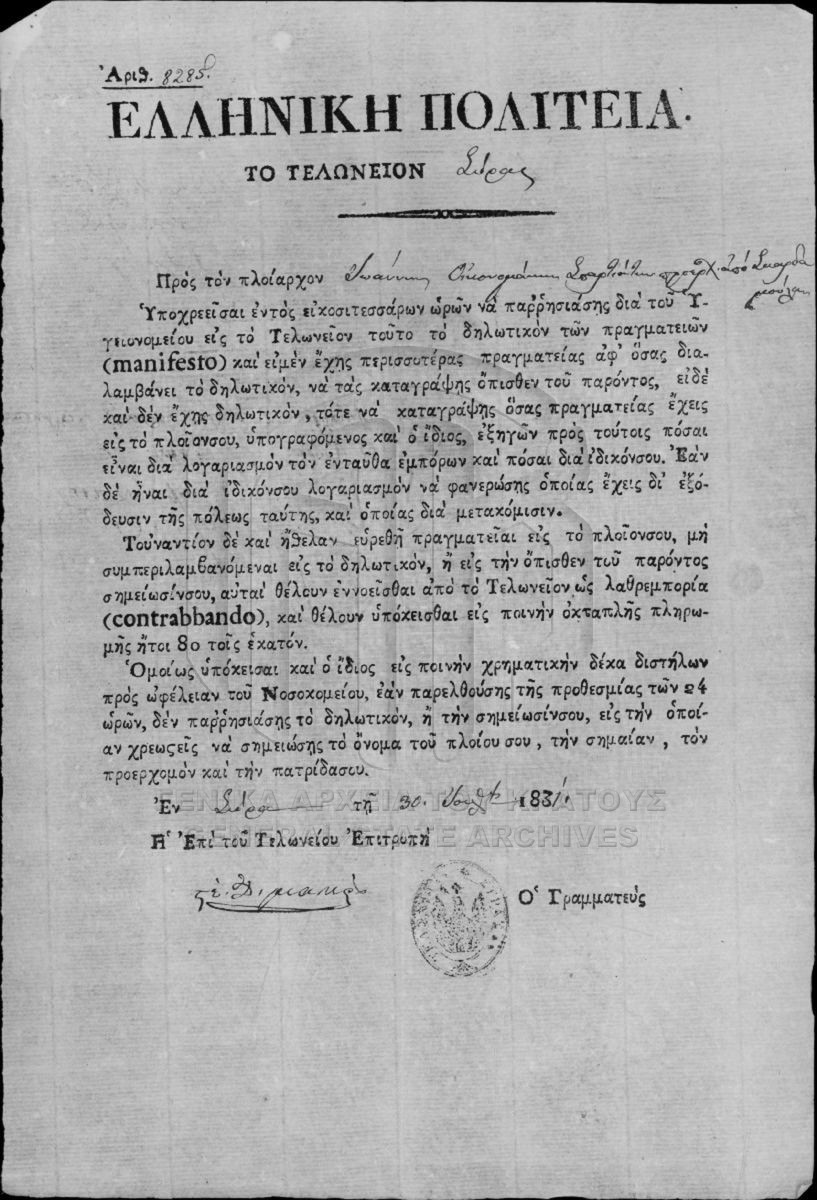 Ἀριθ. 8285.
ΕΛΛΗΝΙΚΗ ΠΟΛΙΤΕΙΑ.
ΤΟ ΤΕΛΩΝΕΙΟΝ Σύρας
Πρὸς τὸν πλοίαρχον Ἰωάννης Οἰκονομάκης Σπαρτιάτην προερχ. ἀπὸ Σκαρδα
μούλαν
Ὑποχρεεῖσαι ἐντὸς εἰκοσιτεσσάρων ὡρῶν νὰ παῤῥησιάσῃς διὰ τοῦ Ὑ-
γειονομείου εἰς τὸ Τελωνεῖον τοῦτο τὸ δηλωτικὸν τῶν πραγματειῶν
(manifesto) καὶ εἰμὲν ἔχῃς περισσοτέρας πραγματείας ἀφ' ὅσας δια-
λαμβάνει τὸ δηλωτικὸν, νὰ τὰς καταγράψῃς ὄπισθεν τοῦ παρόντος, εἰδὲ
καὶ δὲν ἔχῃς δηλωτικὸν, τότε νὰ καταγράψῃς ὅσας πραγματείας ἔχεις
εἰς τὸ πλοῖονσου, ὑπογραφόμενος καὶ ὁ ἴδιος, ἐξηγῶν πρὸς τούτοις πόσαι
εἶναι διὰ λογαριασμὸν τὸν ἐνταῦθα ἐμπόρων καὶ πόσαι διὰ ἰδικόνσου. Ἐὰν
δὲ ἦναι διὰ ἰδικόνσου λογαριασμὸν νὰ φανερώσῃς ὁποίας ἔχεις δι' ἐξό-
δευσιν τῆς πόλεως ταύτης, καὶ ὁποίας διὰ μετακόμισιν.
Τοὐναντίον δὲ καὶ ἤθελαν εὑρεθῆ πραγματεῖαι εἰς τὸ πλοῖονσου, μὴ
συμπεριλαμβανόμεναι εἰς τὸ δηλωτικὸν, ἢ εἰς τὴν ὄπισθεν τοῦ παρόντος
σημείωσίνσου, αὐταὶ θέλουν ἐννοεῖσθαι ἀπὸ τὸ Τελωνεῖον ὡς λαθρεμπορία
(contrabbando), καὶ θέλουν ὑπόκεισθαι εἰς ποινὴν ὀκταπλῆς πληρω-
μῆς ἤτοι 80 τοῖς ἑκατόν.
Ὁμοίως ὑπόκεισαι καὶ ὁ ἴδιος εἰς ποινὴν χρηματικὴν δέκα διστήλων
πρὸς ὠφέλειαν τοῦ Νοσοκομείου, ἐὰν παρελθούσης τῆς προθεσμίας τῶν 24
ὡρῶν, δὲν παῤῥησιάσῃς τὸ δηλωτικὸν, ἢ τὴν σημείωσίνσου, εἰς τὴν ὁποί-
αν χρεωςεῖς νὰ σημειώσῃς τὸ ὄνομα τοῦ πλοίου σου, τὴν σημαίαν, τὸν
προερχομὸν καὶ τὴν πατρίδασου.
Ἐν Σύρα τῇ 30. Ἰουλ. 1831.
ΓΕΝΙΚΑ ΑΡΧΕΙΑ ΤΟΥ ΚΡΑΤΟΥΣ
GENERAL STATE ARCHIVES
Ἡ Ἐπὶ τοῦ Τελωνείου Ἐπιτροπὴ
Ὁ Γραμματεὺς